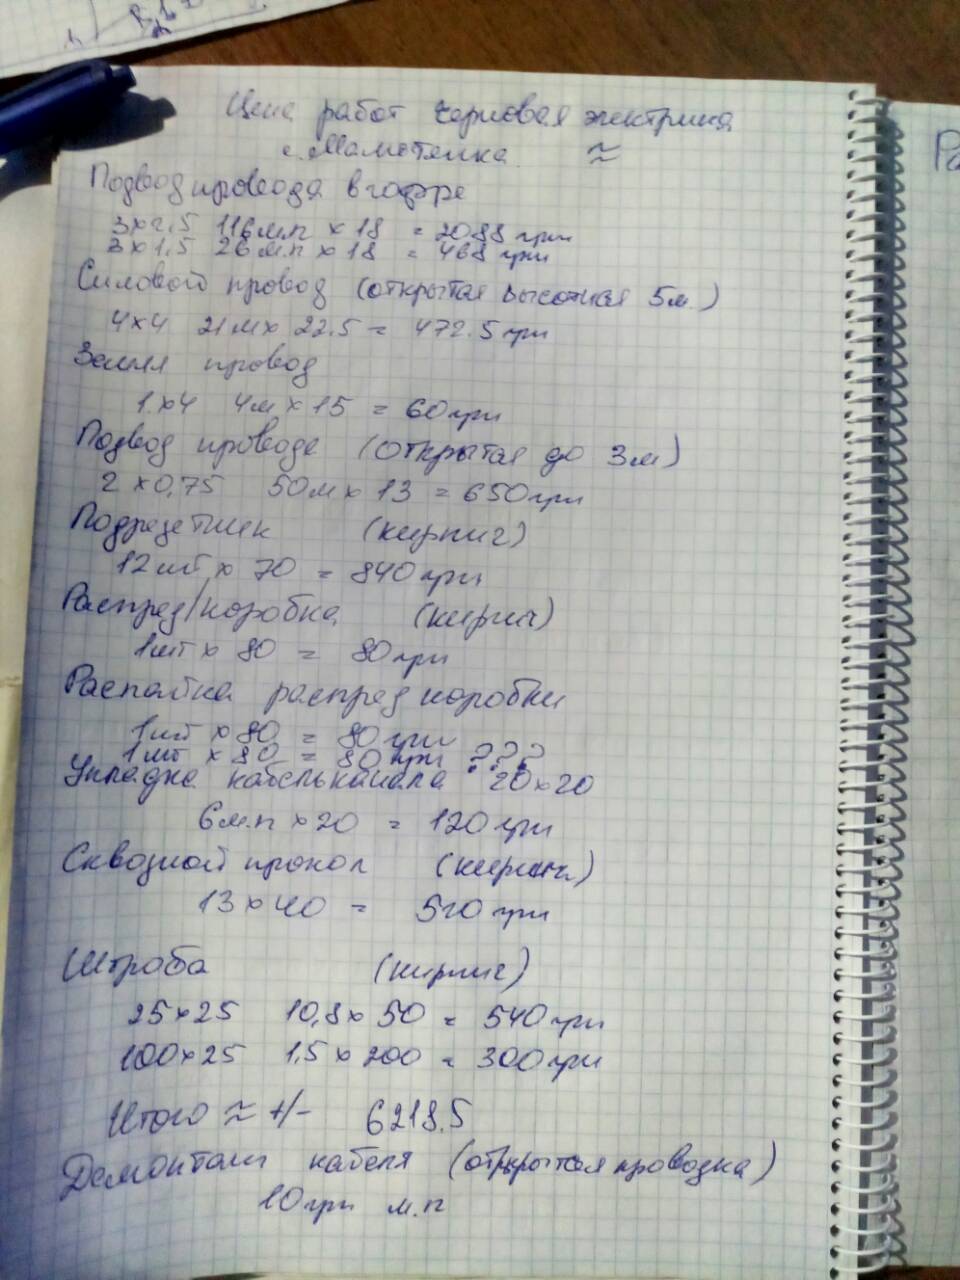 Цена работ черновая электрика
с. Маметенка ≈
Подвод провода в гофре
3×2,5 116м.п × 18 = 2088 грн
3×1,5 26м.п × 18 = 468 грн
Силовой провод (открытая высотная 5м.)
4×4 21м × 22.5 = 472.5 грн
Земля провод
1×4 4м × 15 = 60 грн
Подвод провода (открытая до 3м)
2×0,75 50м × 13 = 650 грн
Подрозетник (кирпич)
12шт × 70 = 840 грн
Распред/коробка (кирпич)
1шт × 80 = 80 грн
Распайка распред коробки
1шт × 80 = 80 грн
1шт × 80 = 80 грн ???
Укладка кабельканала 20×20
6м.п × 20 = 120 грн
Сквозной прокол (кирпич)
13×40 = 520 грн
Штроба (кирпич)
25×25 10,8×50 = 540 грн
100×25 1,5×200 = 300 грн
Итого ≈ +/- 6218.5
Демонтаж кабеля (открытая проводка)
10 грн м.п
Ра